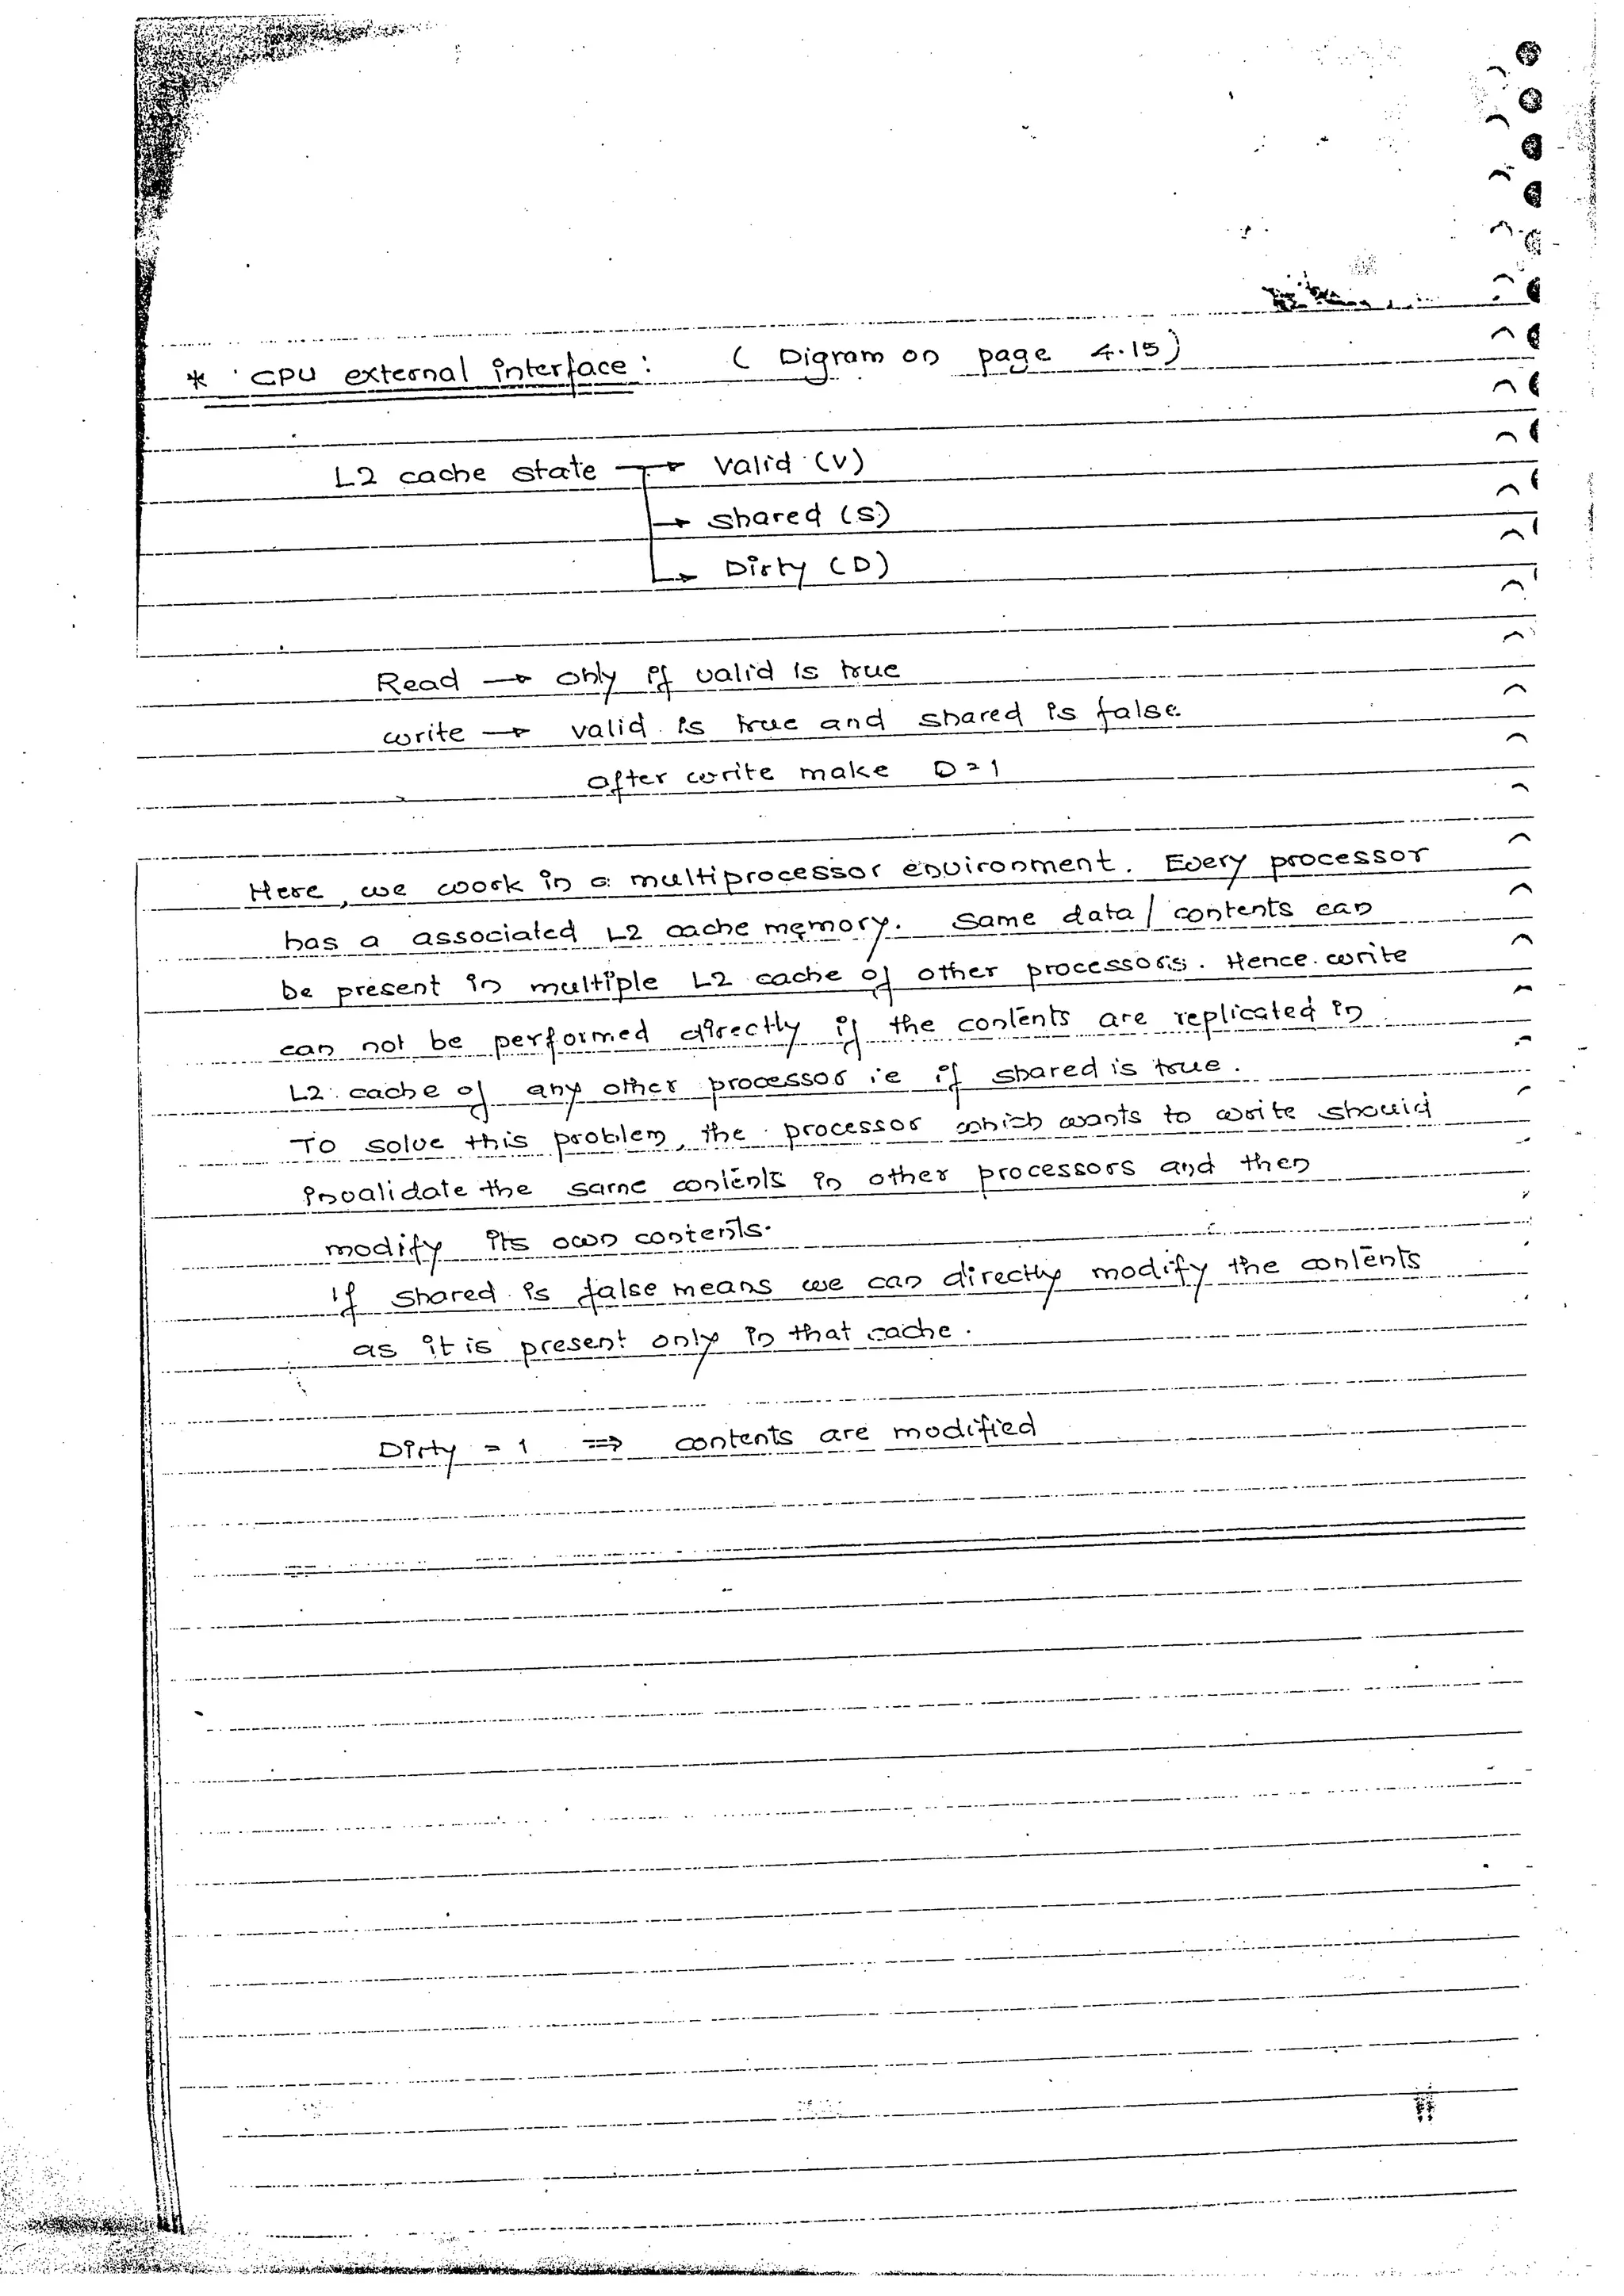 * CPU external interface : ( Digram on page 4.15)
L2 cache state → Valid (V)
→ shared (S)
→ Dirty (D)
Read → only if valid is true
write → valid is true and shared is false
after write make D=1
Here, we work in a multiprocessor environment. Every processor
has a associated L2 cache memory. Same data/ contents can
be present in multiple L2 cache of other processors. Hence write
can not be performed directly if the contents are replicated in
L2 cache of any other processor ie if shared is true.
To solve this problem, the processor which wants to write should
invalidate the same contents in other processors and then
modify its own contents.
If shared is false means we can directly modify the contents
as it is present only in that cache.
Dirty = 1 ⇒ contents are modified